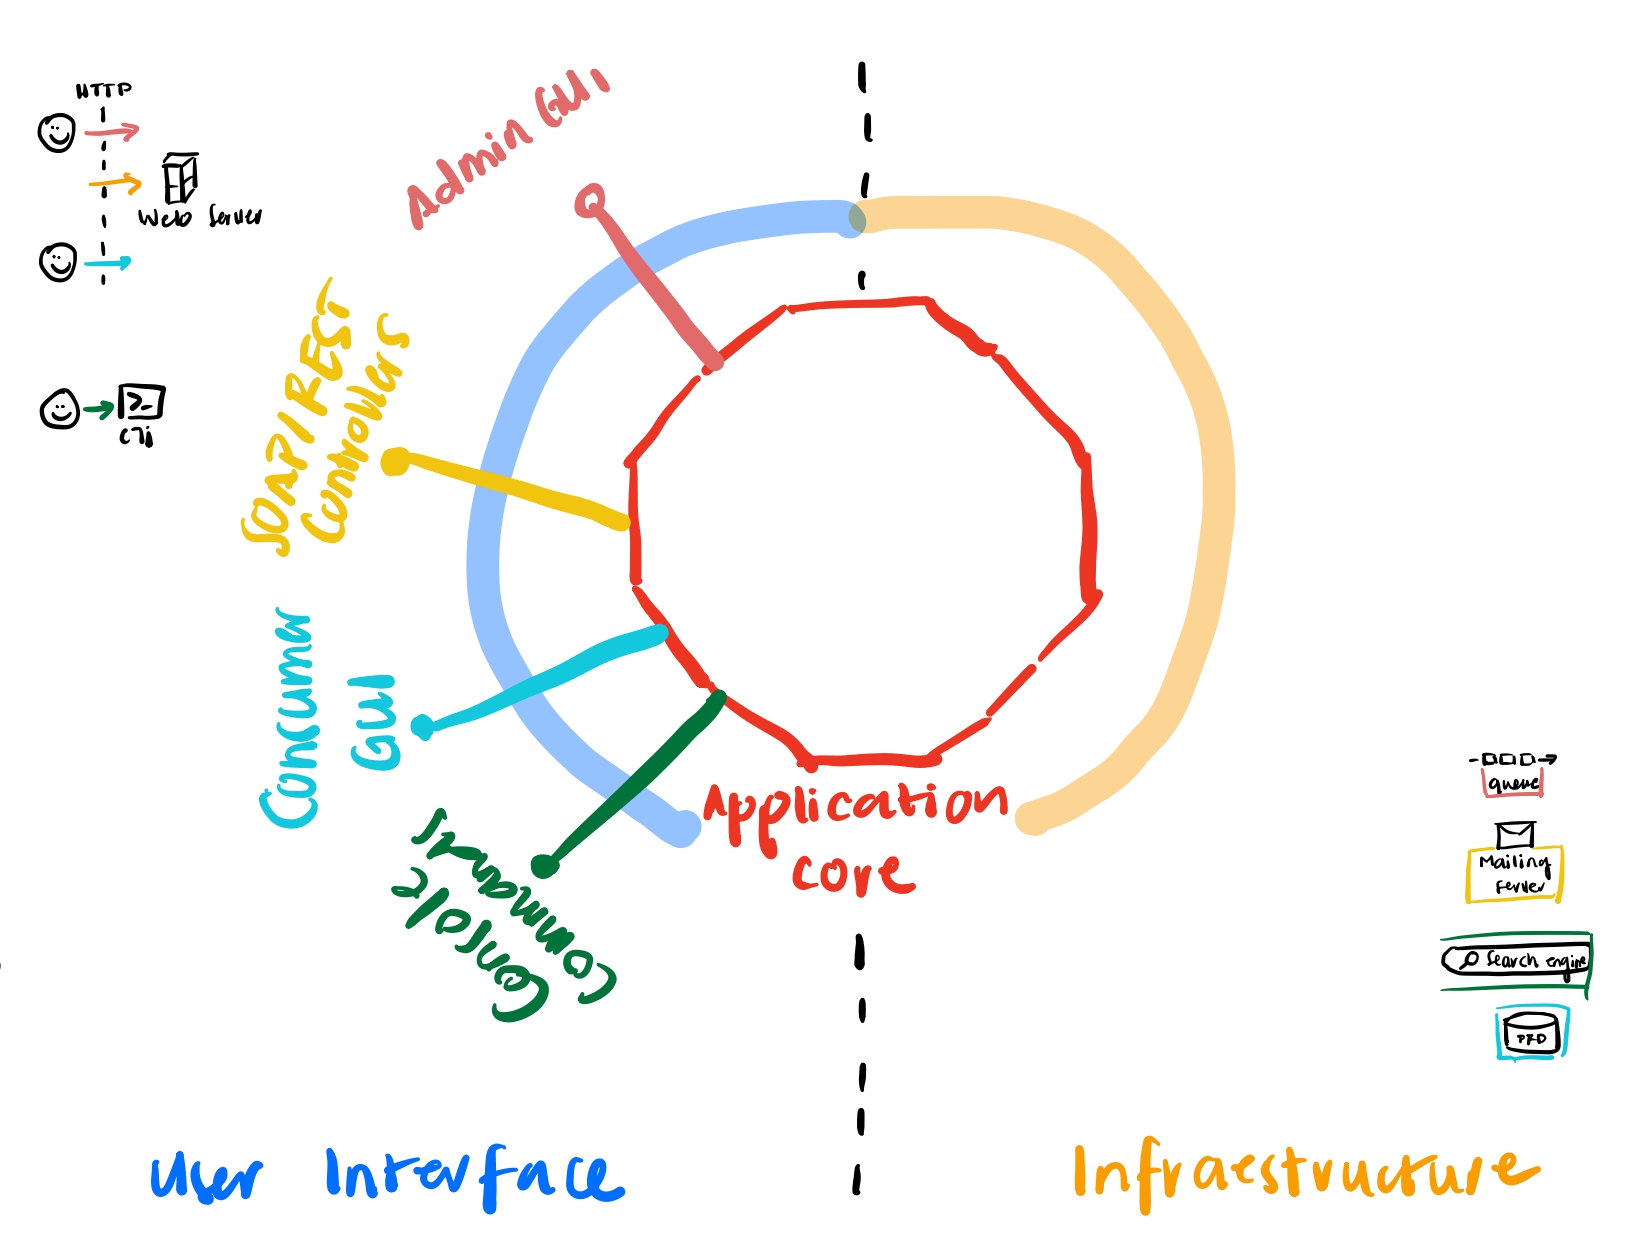 HTTP
Web Server
Admin GUI
SOAP/REST
Controllers
>_
Concumer
GUI
Console
Commands
Application
core
queue
Mailing
server
Search engine
User Interface
Infraestructure